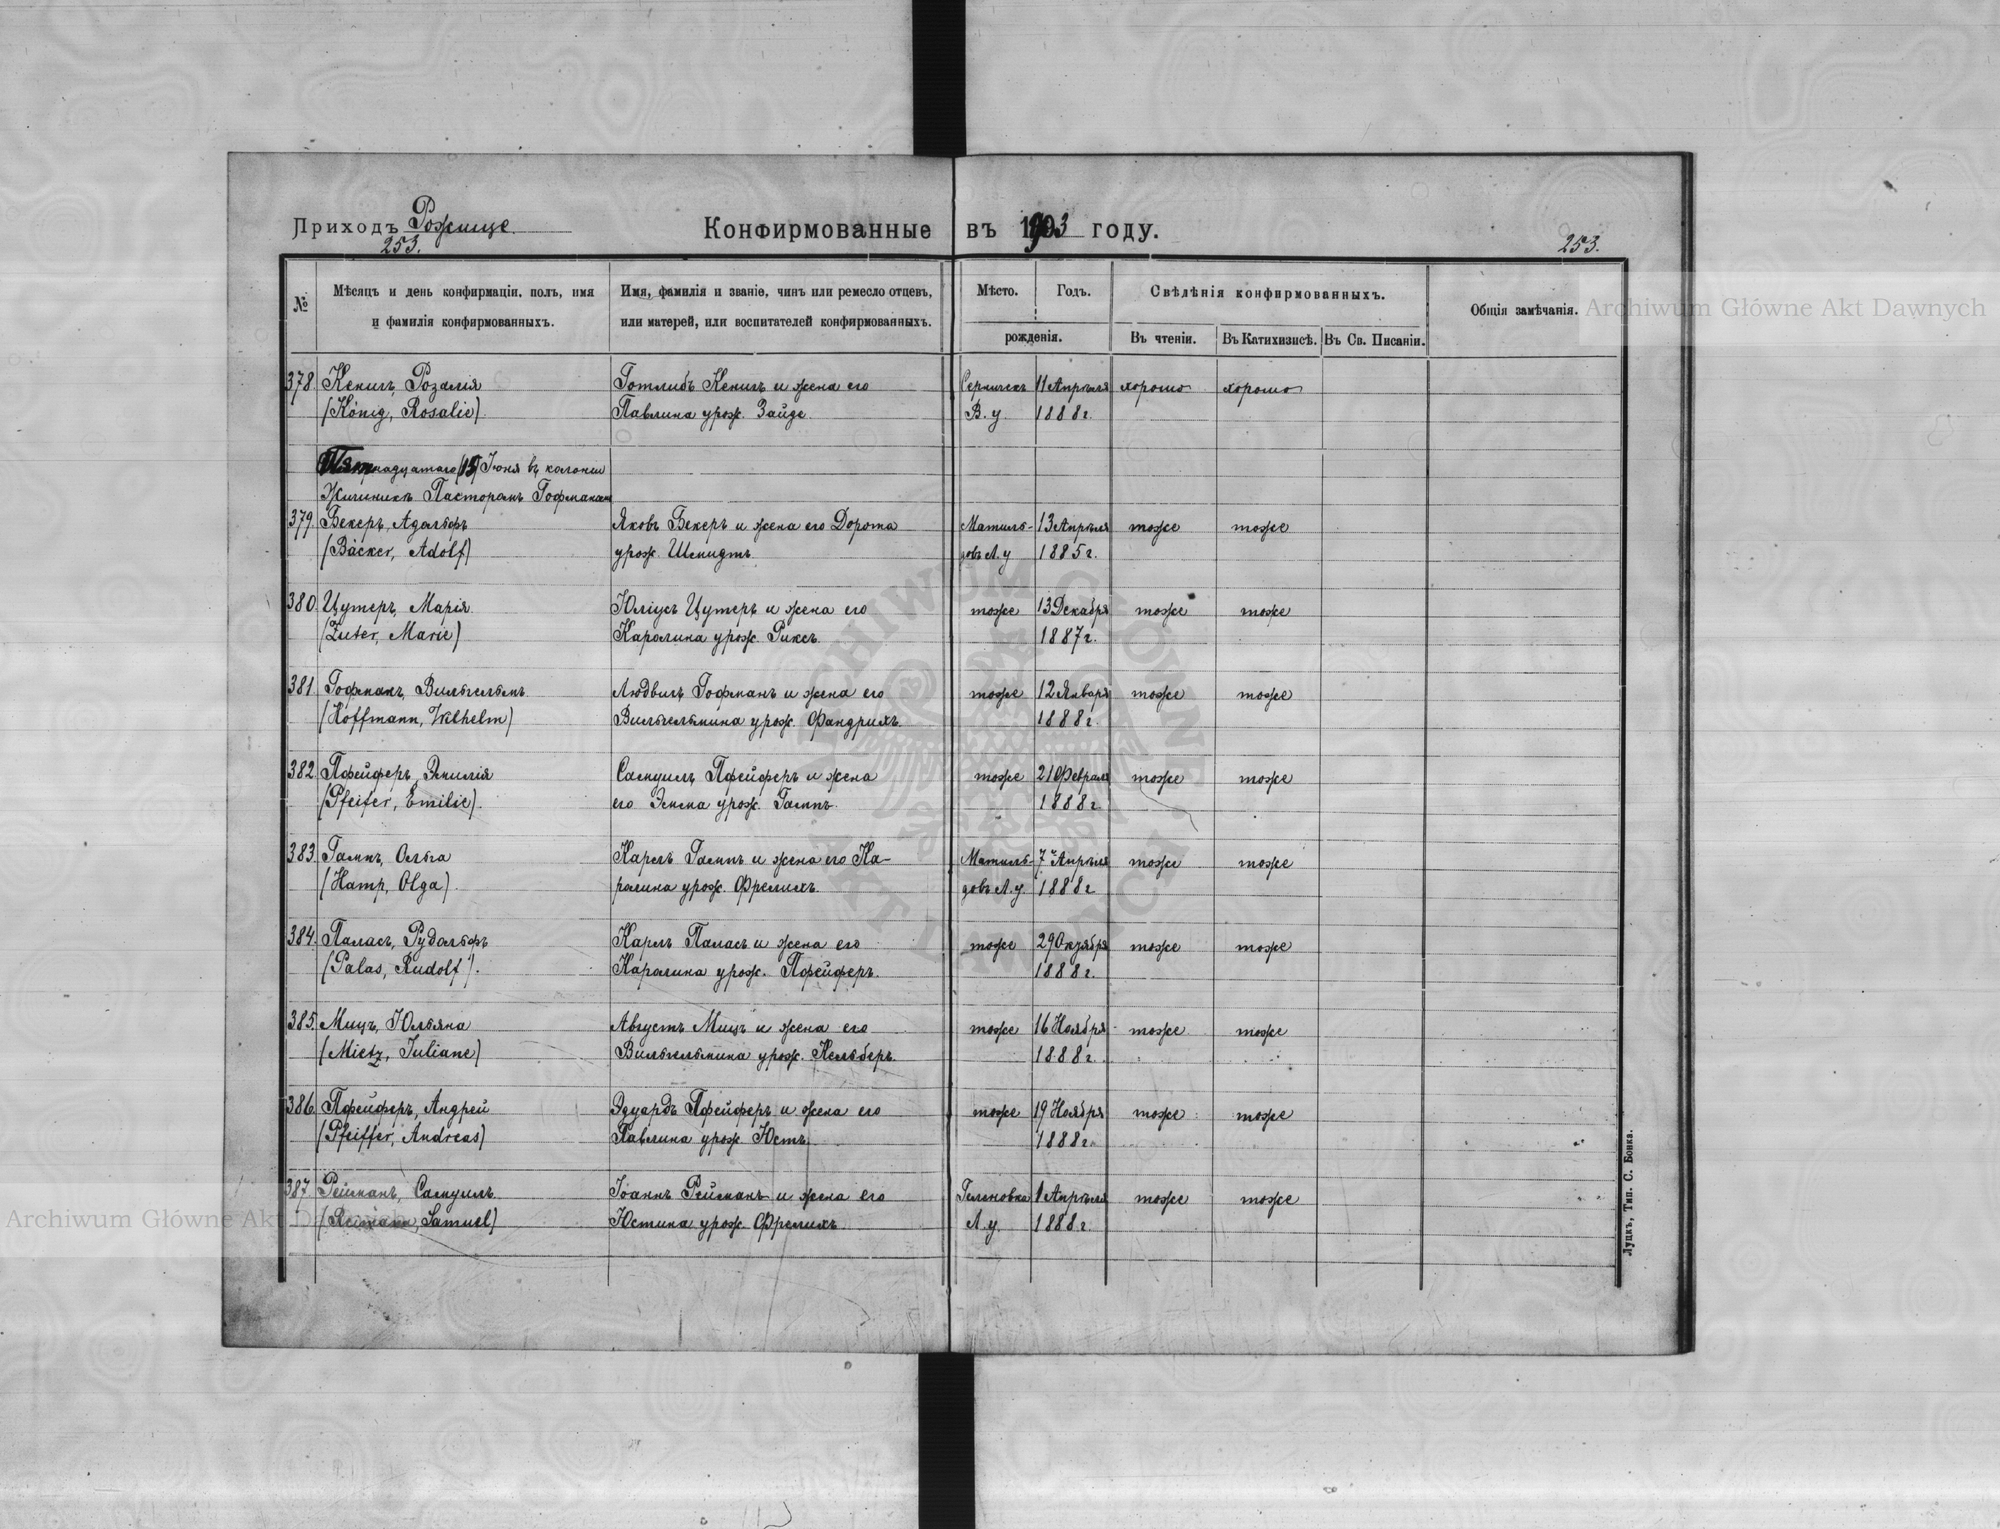 Приходъ Рожище
253.
Конфирмованные въ 1903 году.
253.
№
Мѣсяцъ и день конфирмаціи, полъ, имя
и фамилія конфирмованныхъ.
Имя, фамилія и званіе, чинъ или ремесло отцевъ,
или матерей, или воспитателей конфирмованныхъ.
Мѣсто. Годъ.
рожденія.
Свѣдѣнія конфирмованныхъ.
Въ чтеніи. Въ Катихизисѣ. Въ Св. Писаніи.
Общія замѣчанія.
378. Кенигъ, Розалія Готлибъ Кенигъ и жена его 11 Апрѣля хорошо хорошо
(König, Rosalie). Павлина урож. Зайде. В. у. 1888 г.
Пятнадцатаго (15) Іюня въ колоніи
Пасторомъ Гофманомъ
379. Бекеръ, Адольфъ Яковъ Бекеръ и жена его Дорота Матиль- 13 Апрѣля тоже тоже
(Bäcker, Adolf) урож. Шмидтъ. довъ Л. у 1885 г.
380. Цутеръ, Марія Юліусъ Цутеръ и жена его тоже 13 Декабря тоже тоже
(Zuter, Marie) Каролина урож. Риксъ. 1887 г.
381. Гофманъ, Вильгельмъ Людвигъ Гофманъ и жена его тоже 12 Января тоже тоже
(Hoffmann, Wilhelm) Вильгельмина урож. Фандрихъ. 1888 г.
382. Пфейферъ, Эмилія Самуилъ Пфейферъ и жена тоже 21 Февраля тоже тоже
(Pfeifer, Emilie). его Эмма урож. Гампъ. 1888 г
383. Гампъ, Ольга Карлъ Гампъ и жена его Ка- Матиль- 7 Апрѣля тоже тоже
(Hamp, Olga). ролина урож. Фрелихъ. довъ Л. у. 1888 г
384. Паласъ, Рудольфъ Карлъ Паласъ и жена его тоже 29 Октября тоже тоже
(Palas, Rudolf). Каролина урож. Пфейферъ. 1888 г.
385. Мицъ, Юльяна Августъ Мицъ и жена его тоже 16 Ноября тоже тоже
(Mietz, Juliane) Вильгельмина урож. Кельберъ. 1888 г.
386. Пфейферъ, Андрей Эдуардъ Пфейферъ и жена его тоже 19 Ноября тоже тоже
(Pfeiffer, Andreas) Павлина урож. Юстъ. 1888 г.
387. Рейманъ, Самуилъ Іоаннъ Рейманъ и жена его Геленовка 1 Апрѣля тоже тоже
(Reimann, Samuel) Юстина урож. Фрелихъ. Л. у. 1888 г.
Луцкъ, Тип. С. Бонка.
Archiwum Główne Akt Dawnych
Archiwum Główne Akt Dawnych
ARCHIWUM GŁÓWNE AKT DAWNYCH